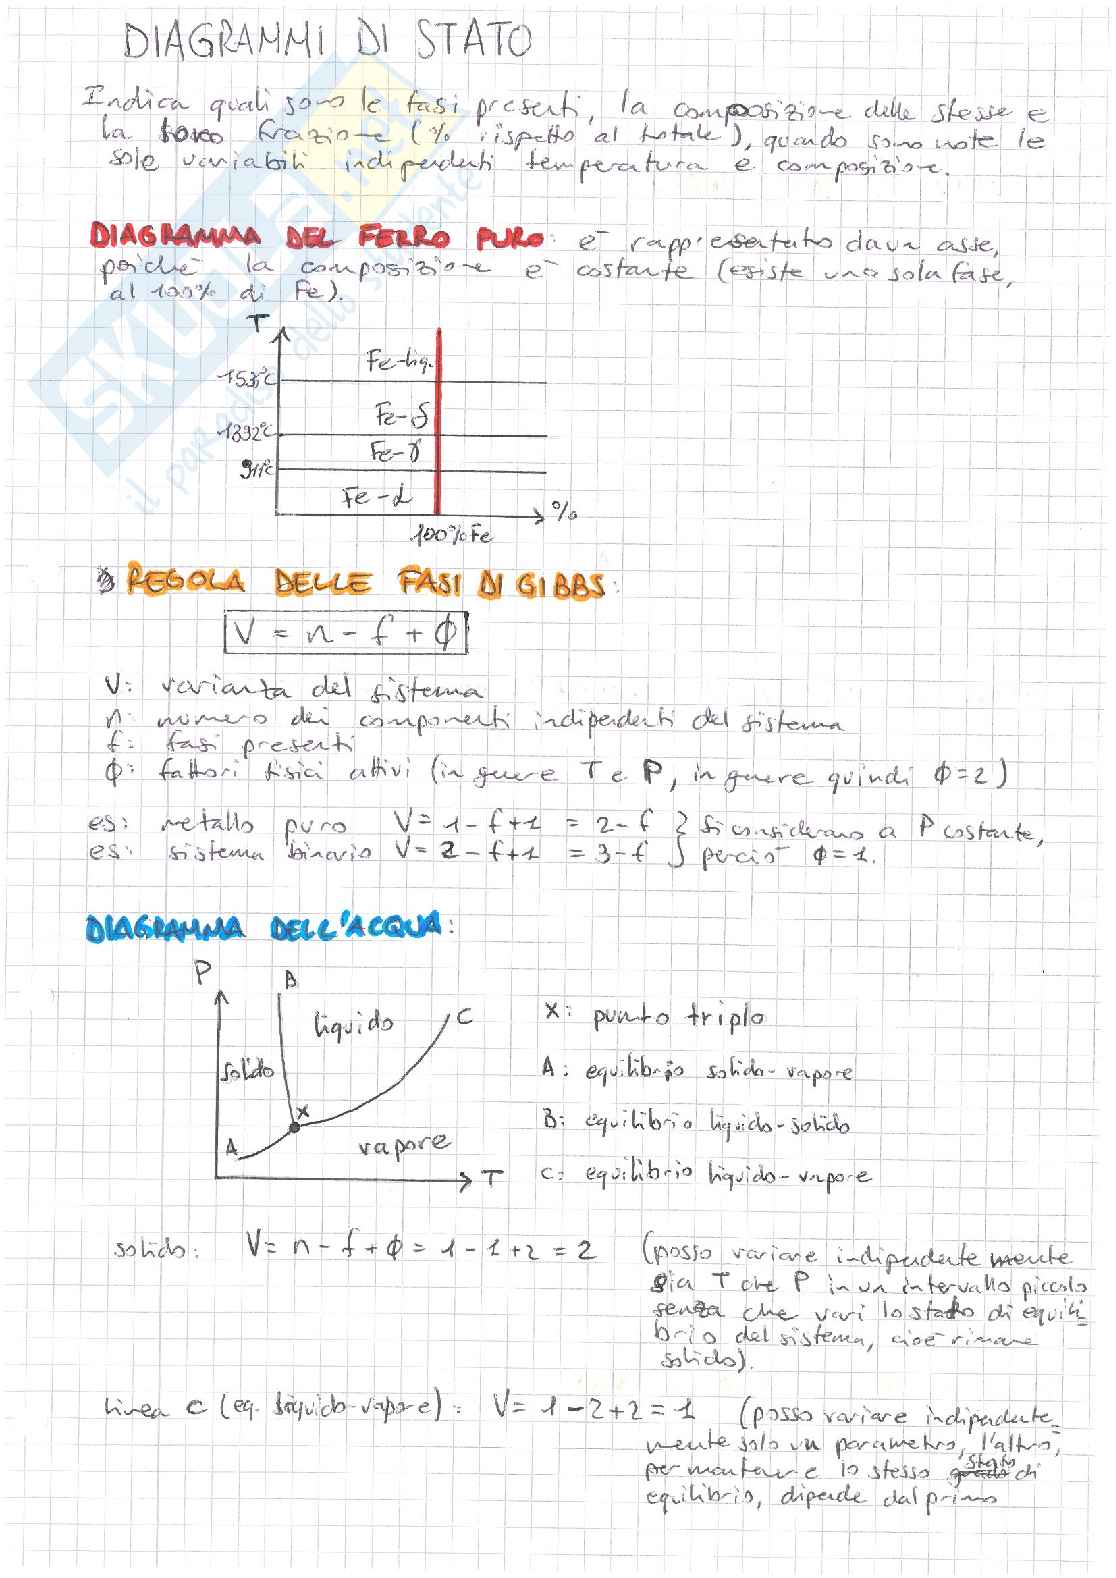 DIAGRAMMI DI STATO
Indica quali sono le fasi presenti, la composizione delle stesse e
la loro frazione (% rispetto al totale), quando sono note le
sole variabili indipendenti temperatura e composizione.
DIAGRAMMA DEL FERRO PURO: è rappresentato da un asse,
poiché la composizione è costante (esiste una sola fase,
al 100% di Fe).
T
Fe-liq.
1535°C
Fe-δ
1392°C
Fe-γ
911°C
Fe-α
%
100% Fe
REGOLA DELLE FASI DI GIBBS:
V = n - f + Φ
V: varianza del sistema
n: numero dei componenti indipendenti del sistema
f: fasi presenti
Φ: fattori fisici attivi (in genere T e P, in genere quindi Φ=2)
es: metallo puro V = 1 - f + 1 = 2 - f } si considerano a P costante,
es: sistema binario V = 2 - f + 1 = 3 - f } perciò Φ = 1.
DIAGRAMMA DELL'ACQUA:
P
B
liquido
C
solido
X
A
vapore
T
X: punto triplo
A: equilibrio solido-vapore
B: equilibrio liquido-solido
C: equilibrio liquido-vapore
solido: V = n - f + Φ = 1 - 1 + 2 = 2 (posso variare indipendentemente
sia T che P in un intervallo piccolo
senza che vari lo stato di equili-
brio del sistema, cioè rimane
solido).
linea C (eq. liquido-vapore): V = 1 - 2 + 2 = 1 (posso variare indipendente-
mente solo un parametro, l'altro,
per mantenere lo stesso stato di
equilibrio, dipende dal primo
SKUOLA.net
il paradiso dello studente